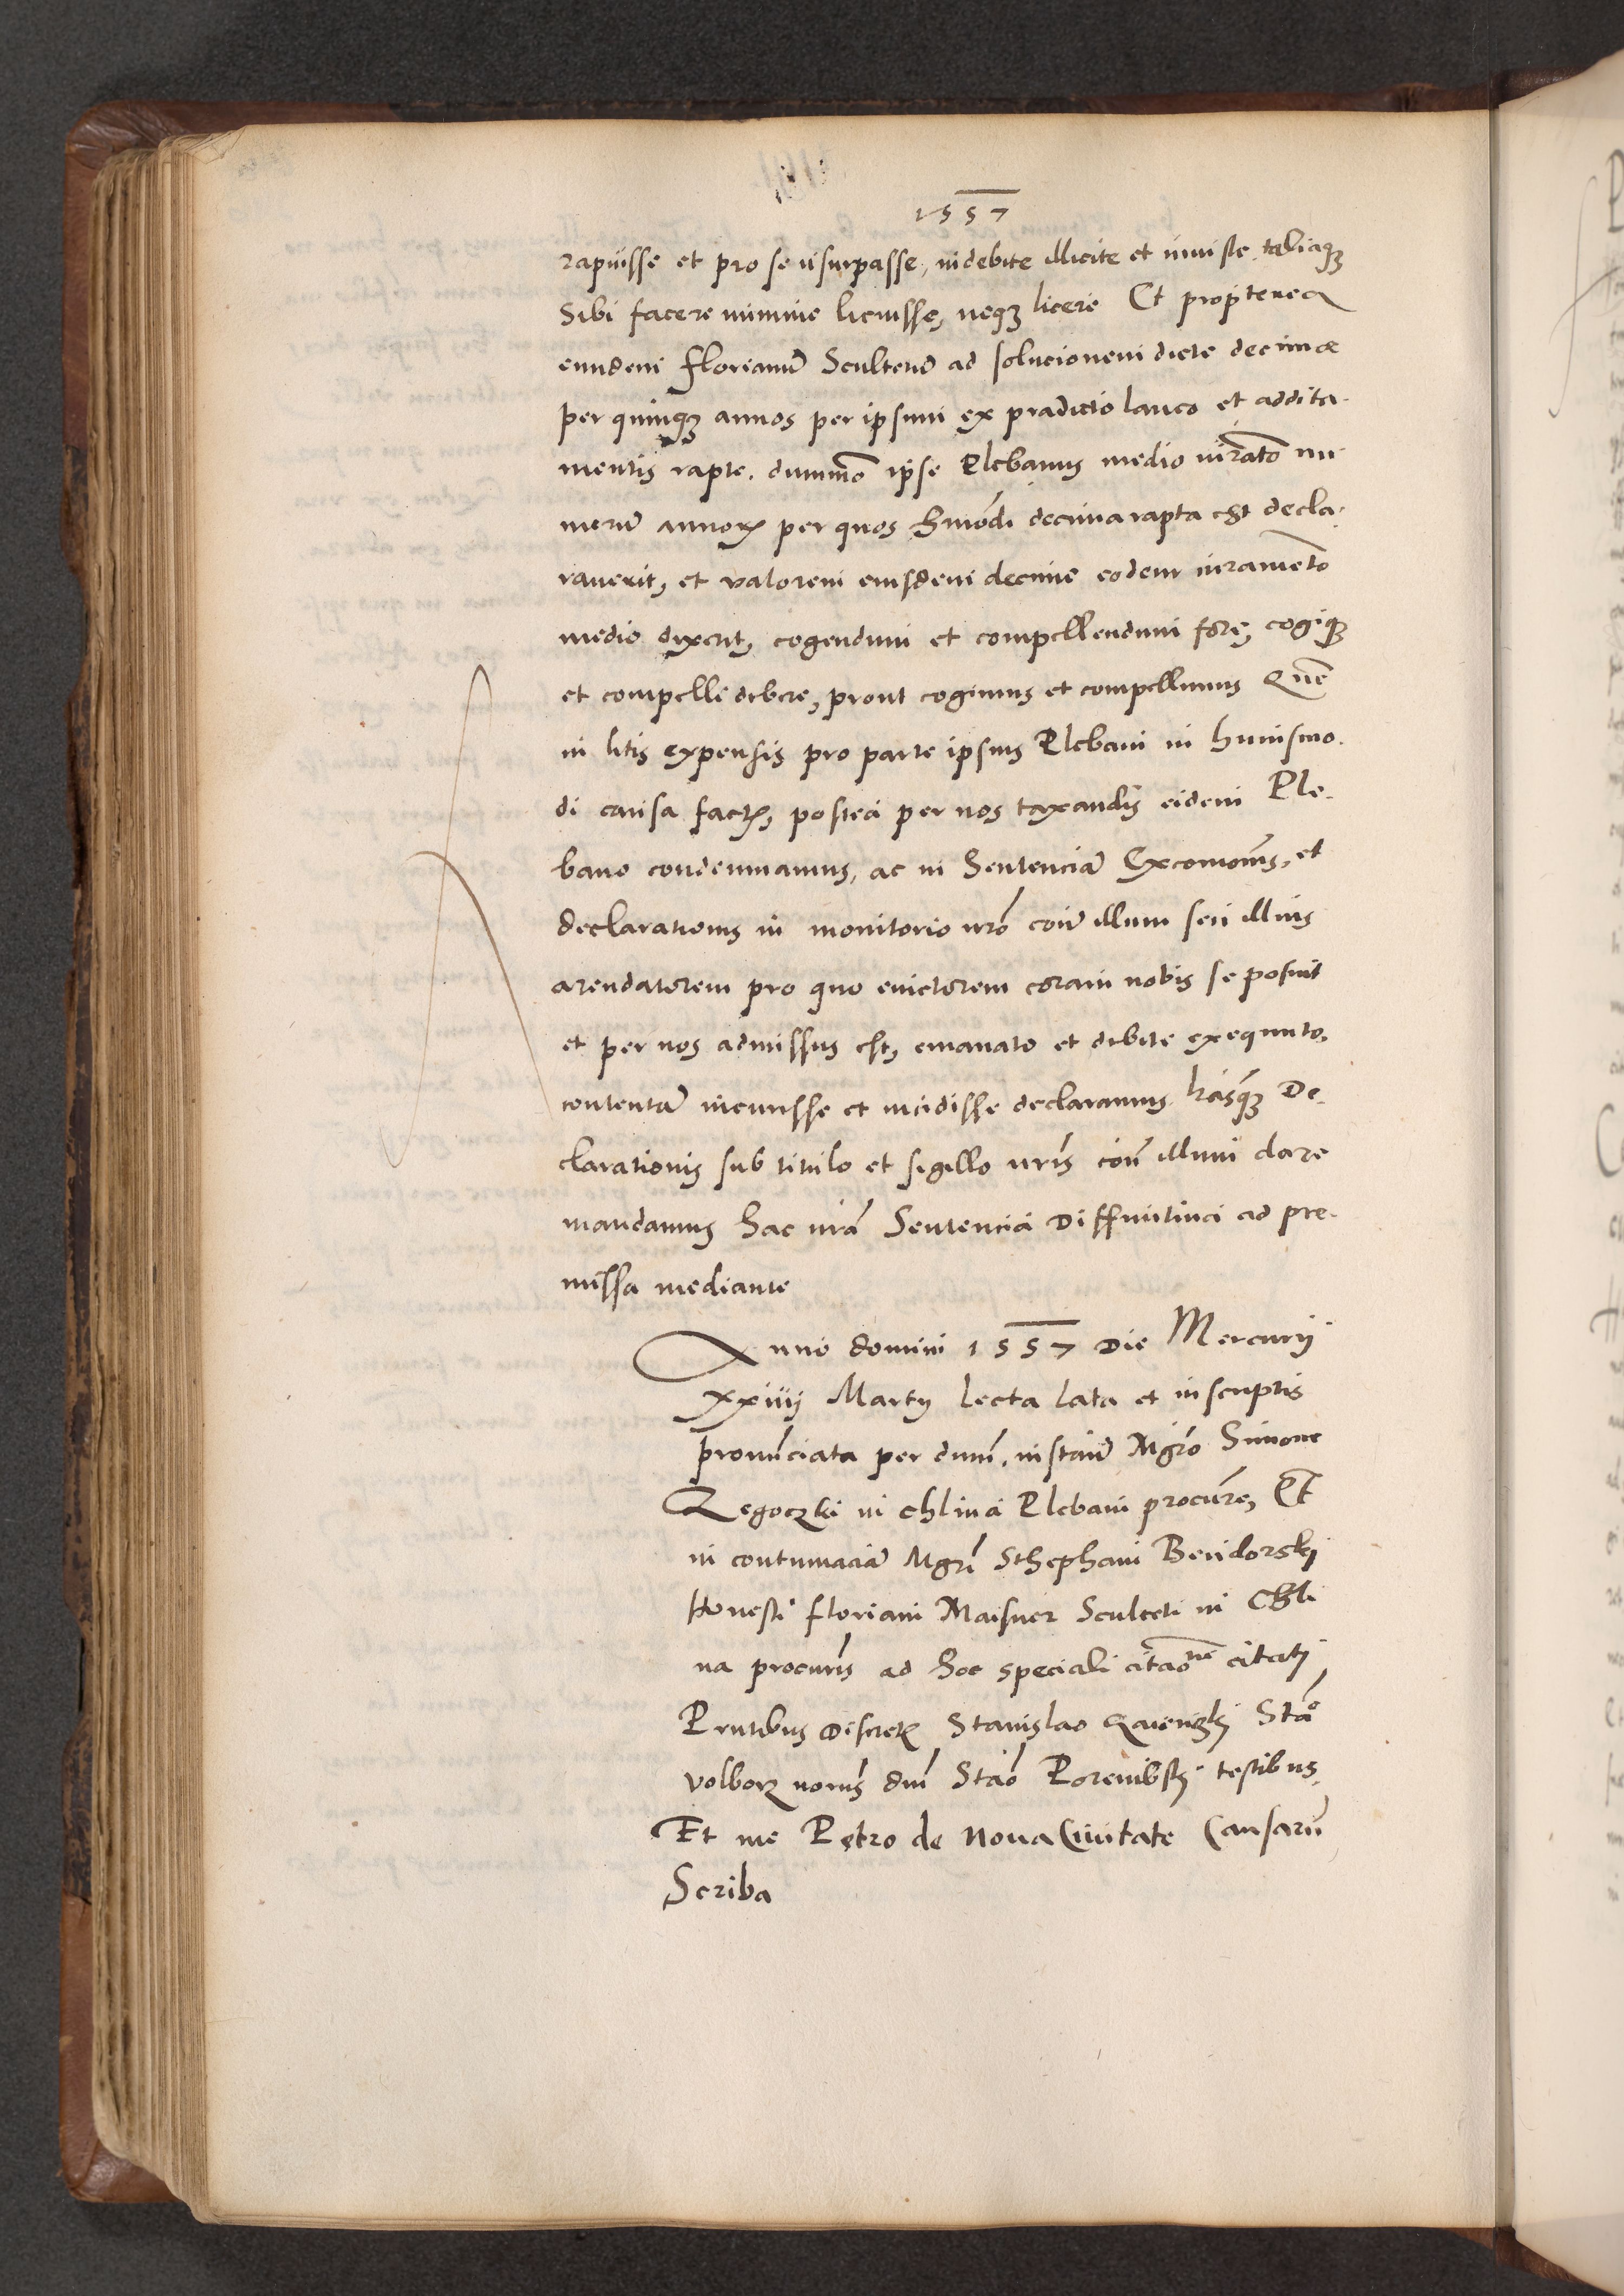 1557
rapuisse et pro se usurpasse, indebite illicite et iniuste, taliaqꝫ
Sibi facere minime licuisse, neqꝫ licere Et propterea
eundem florianū Scultetū ad solucionem dicte decimæ
per quinqꝫ annos per ipsum ex pradicto laneo et addita-
mentis rapte, dummō ipse Plebanus medio iurāto nu-
merū annoꝝ per quos hmōdi decima rapta est decla-
raverit, et valorem eiusdem decime eodem iuramēto
medio dixerit, cogendum et compellendum fore, cogiqꝫ
et compelli debere, prout cogimus et compellimus Quē
in litis expensis pro parte ipsius Plebani in huiusmo-
di causa factꝭ, postea per nos taxandis eidem Ple-
bano condemnamus, ac in Sentenciā Excomōnis, et
declarationis in monitorio nr̄o cōn illum seu illius
arendatorem pro quo evictorem coram nobis se posuit
et per nos admissus est, emanato et debite exequuto,
contentā incurisse et incidisse declaramus hāsqꝫ De-
clarationis sub titulo et sigillo nr̄is cōn illum dare
mandamus hac nr̄a Sentencia Diffinitiva ad pre-
missa mediante
Anno domini 1557 Die Mercurij
xxiiij Martij Lecta lata et in scriptis
pronūciata per dnm̄, instan̄ Mgrō Simone
Zegoczki in Chlina Plebani procur̄e, Et
in contumaciā Mgrī Sthephani Bendorskj
Honesti floriani Maisner Sculteti in Chli
na procur̄is ad hoc speciali citaōne citatj
Pn̄tibus Discretꝭ Stanislao Stāo
volborz nor̄is dnī Stāo Porembskj testibus
Et me Petro de Nova Civitate Causarū
Scriba